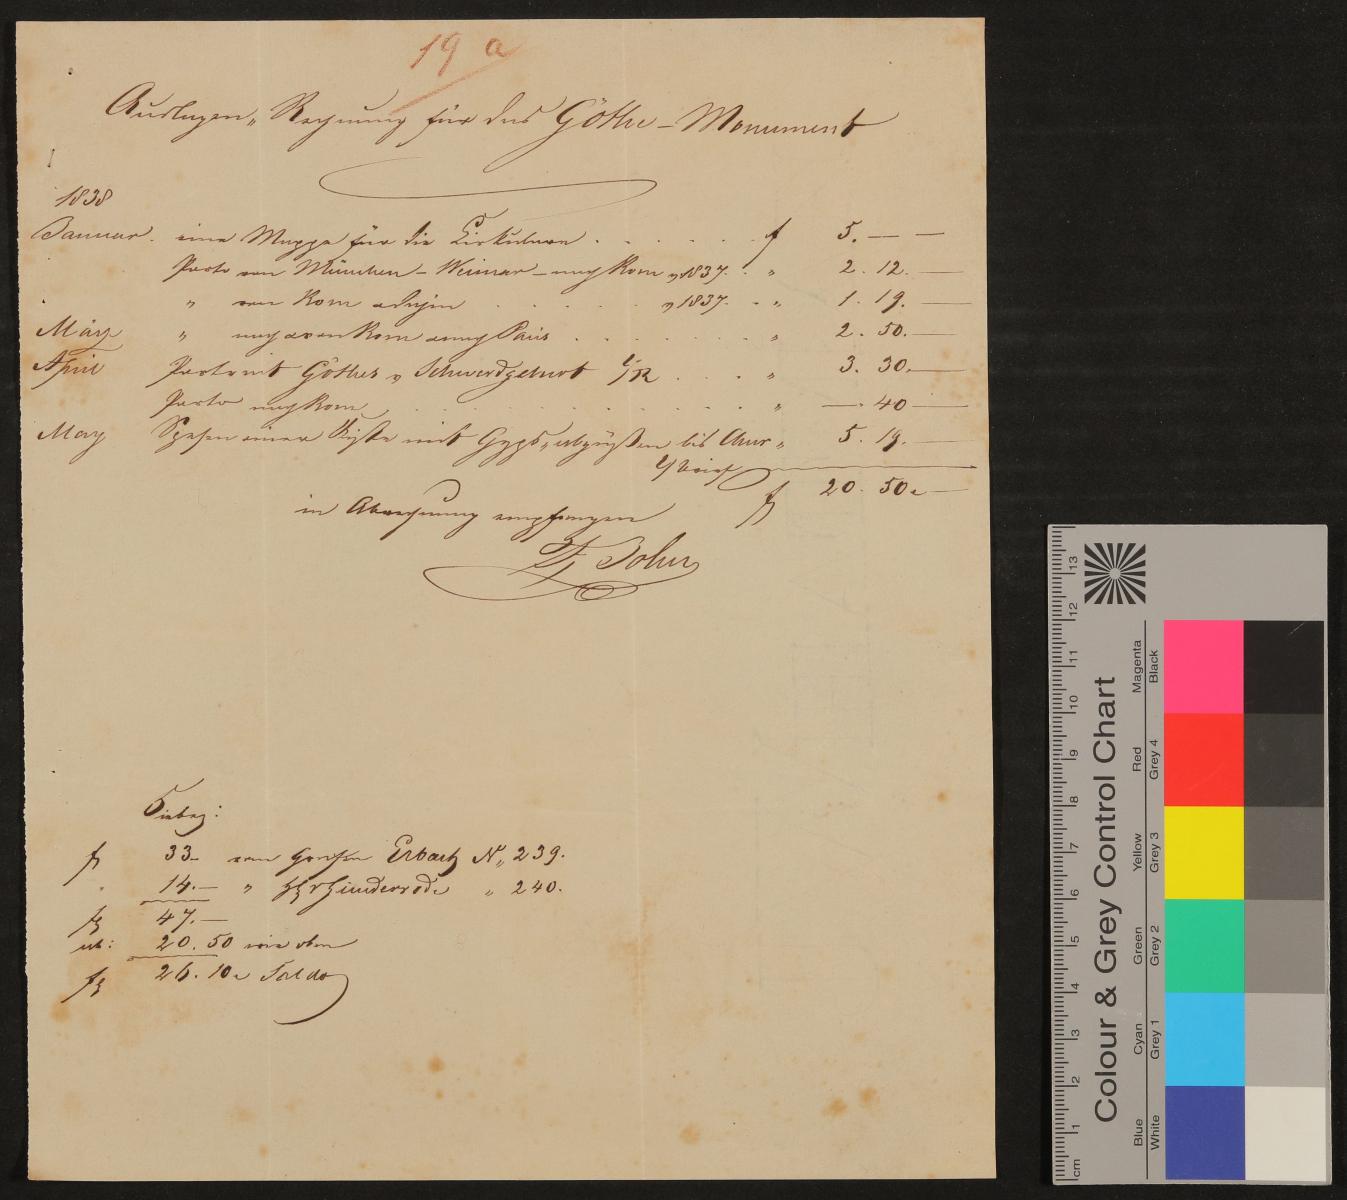 19 a
Auslagen„ Rechnung für das Göthe-Monument
1838
Januar. eine Mappe für die Cirkulare . . . . . f 5. — —
Porto von München - Weimar - nach Rom „ 1837. „ 2. 12. —
„ von Rom „ 1837. „ 1. 19. —
März „ nach Rom Paris . . . . . „ 2. 50. —
April Portrait Göthes v Schwerdgeburt . . . „ 3. 30. —
Porto nach Rom . . . . . „ — . 40 —
May Spesen einer Kiste mit Gyps„abgüßen bis Chur „ 5. 19. —
f 20. 50 —
in Abrechnung empfangen
33 von Grafen Erbach N„ 239.
14. — „ Günderrode „ 240.
f 47. —
ab: 20. 50 wie oben
f 26. 10 Saldo
Colour & Grey Control Chart
Blue Cyan Green Yellow Red Magenta
White Grey 1 Grey 2 Grey 3 Grey 4 Black
cm 1 2 3 4 5 6 7 8 9 10 11 12 13